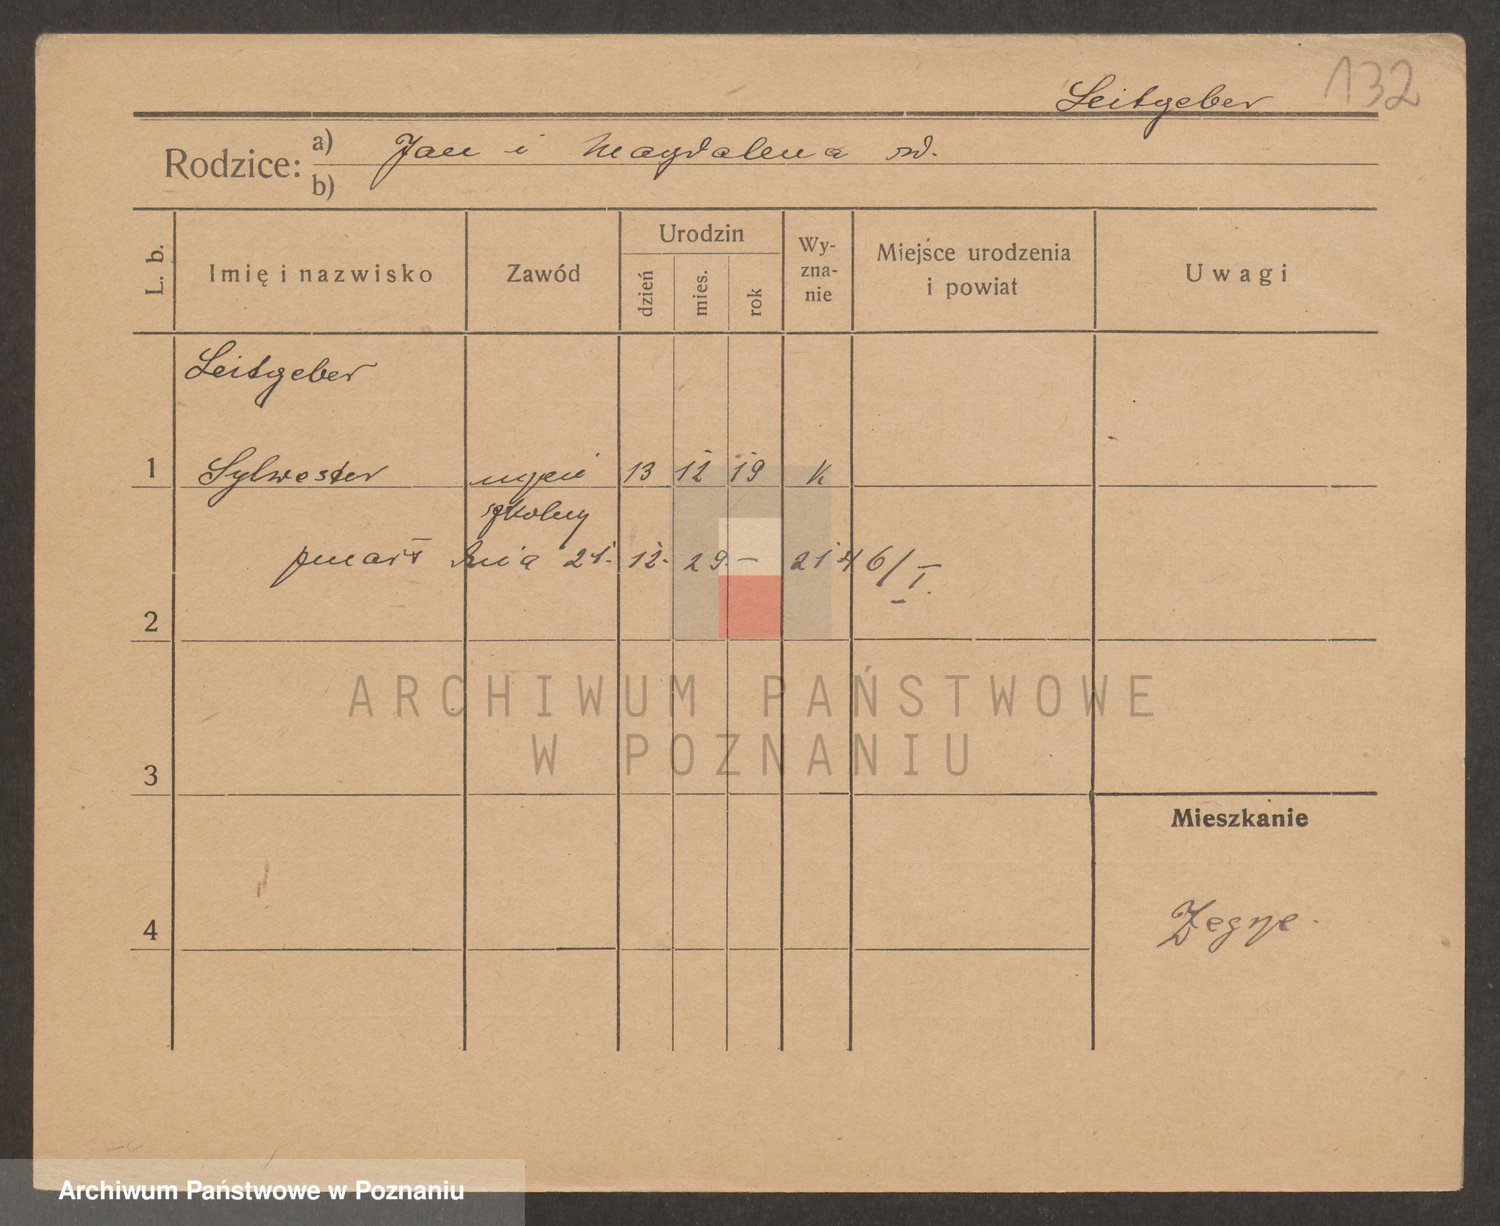 132
Leitgeber
Rodzice: a) Jan i Magdalena
b)
L. b.
Imię i nazwisko
Zawód
Urodzin
dzień
mies.
rok
Wy-
zna-
nie
Miejsce urodzenia
i powiat
Uwagi
Leitgeber
1 Sylwester uczeń 13 12 19 k
szkolny
zmarł dnia 21. 12. 29 – 2146/I.
2
3
Mieszkanie
4
Żegrze
ARCHIWUM PAŃSTWOWE
W POZNANIU
Archiwum Państwowe w Poznaniu